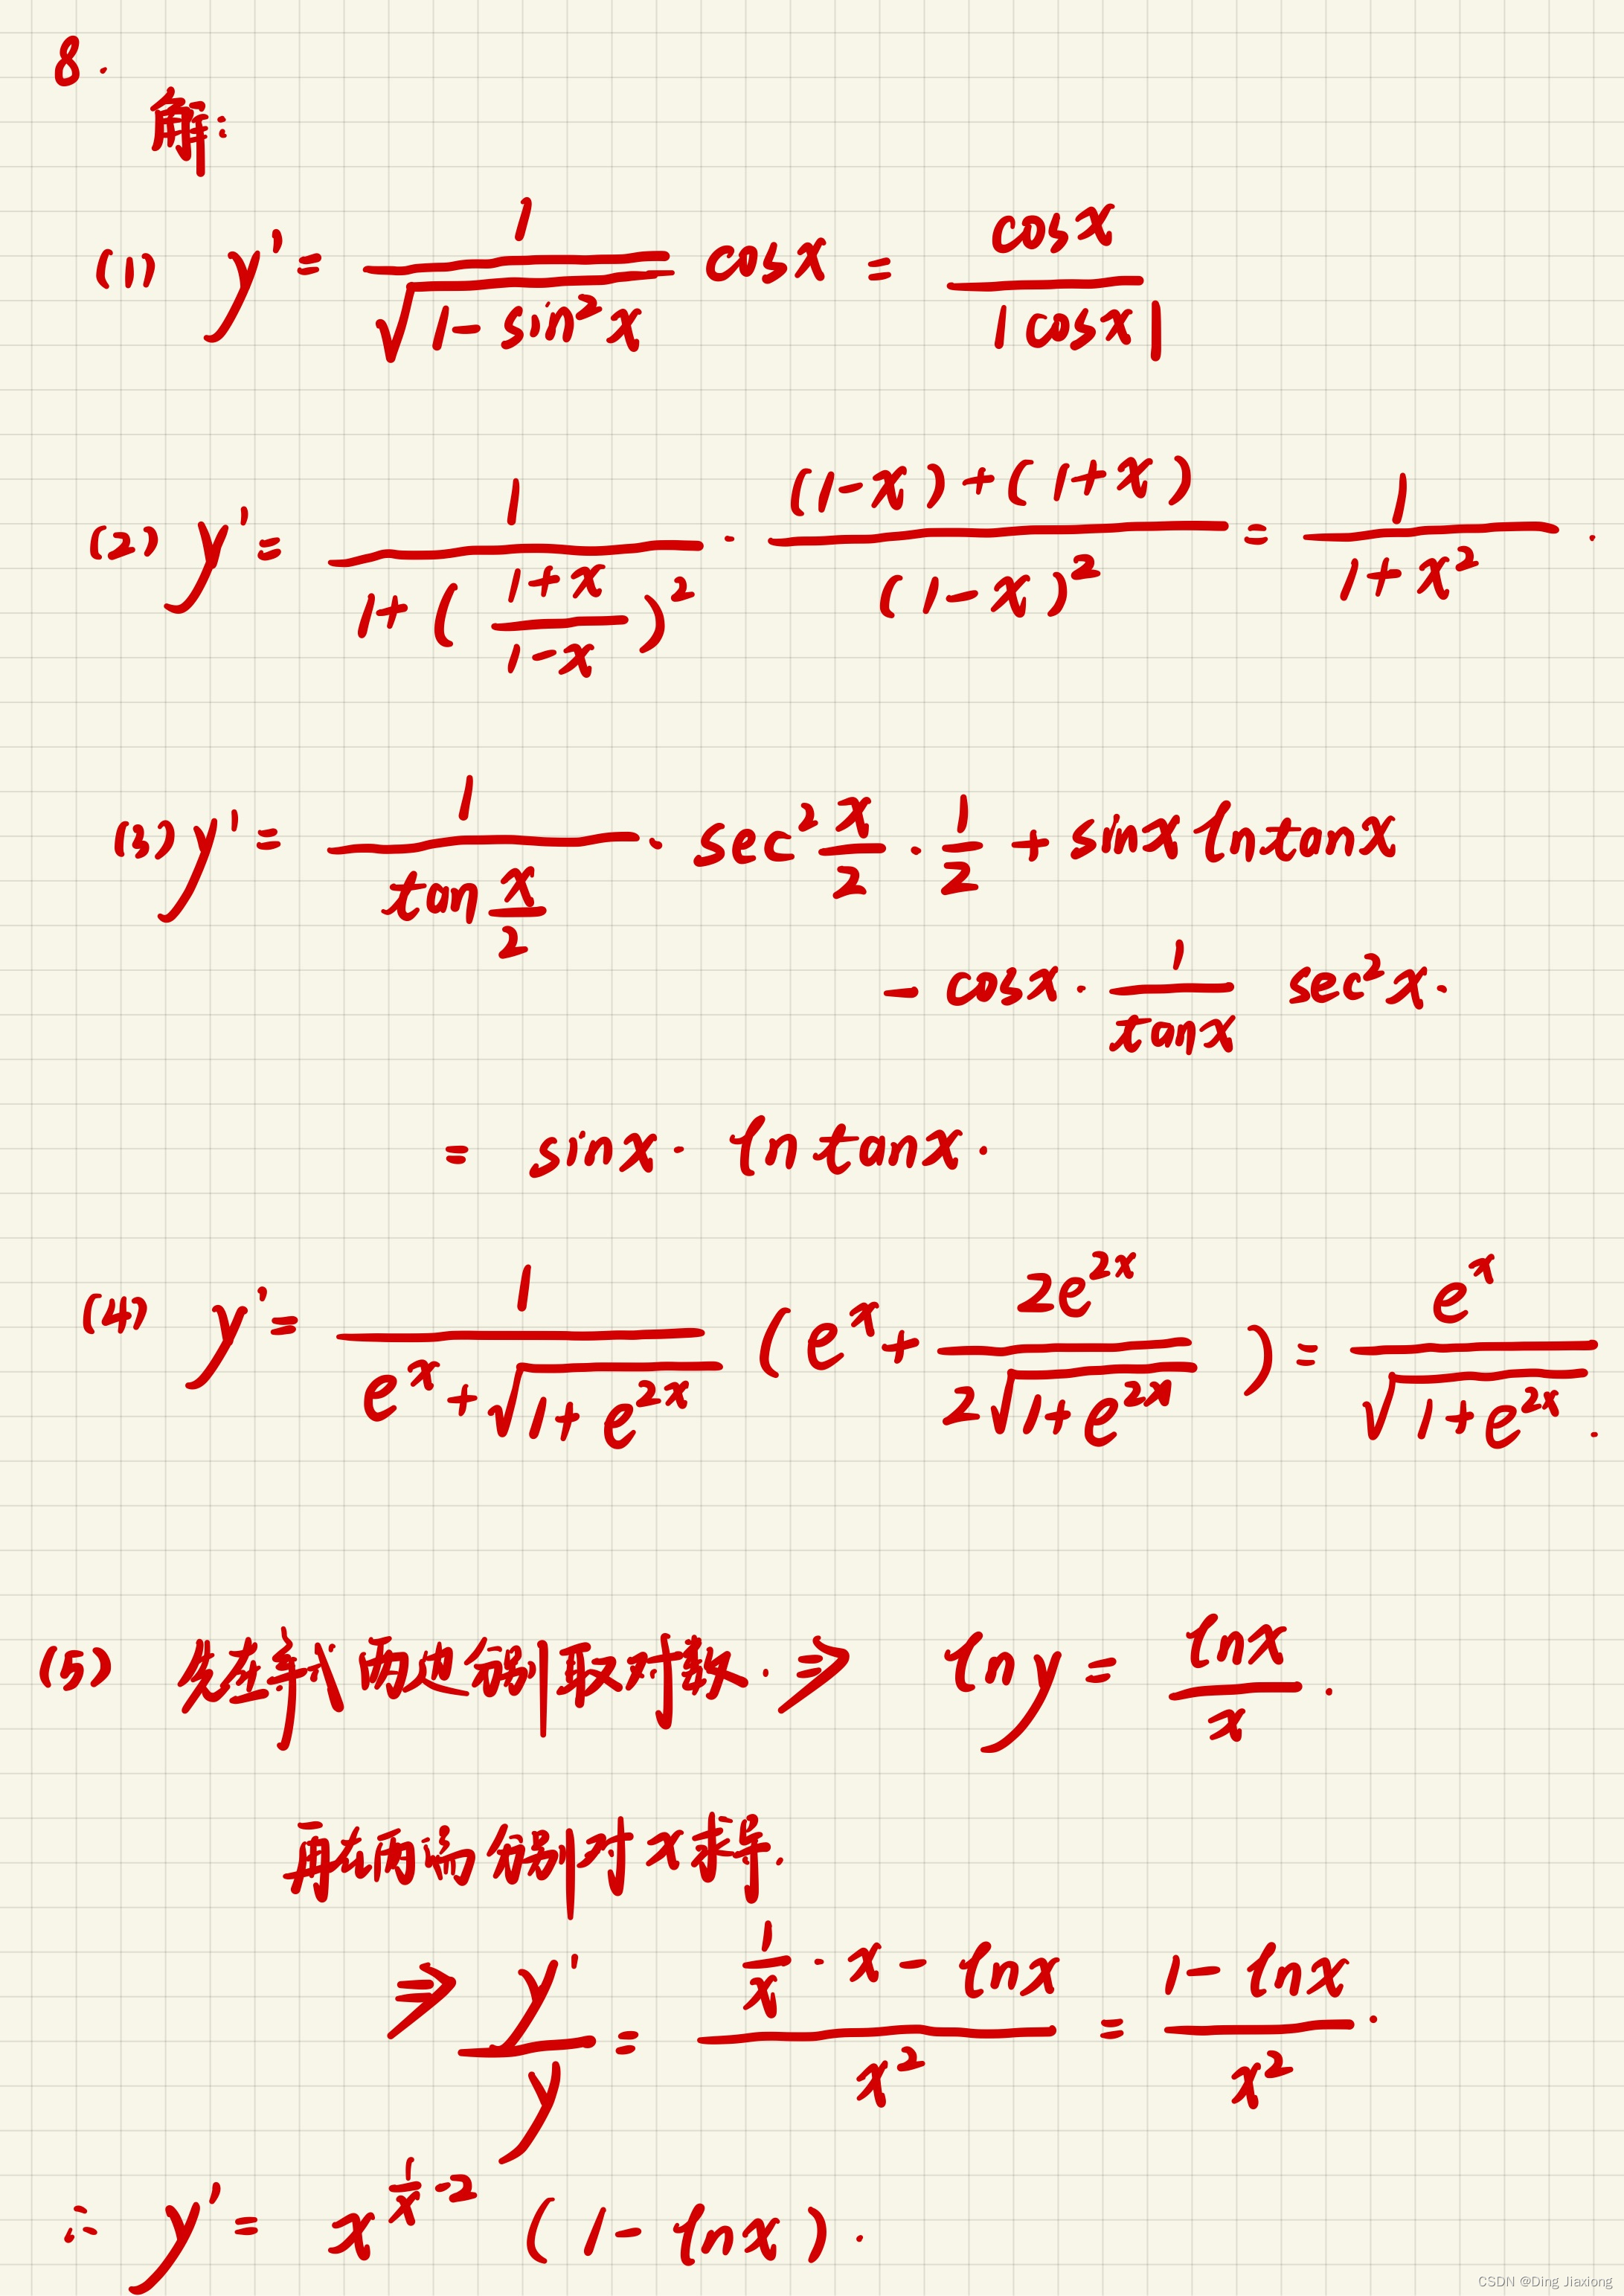 8.
解:
(1) y' = \frac{1}{\sqrt{1-sin^2x}} cosx = \frac{cosx}{|cosx|}
(2) y' = \frac{1}{1+(\frac{1+x}{1-x})^2} · \frac{(1-x)+(1+x)}{(1-x)^2} = \frac{1}{1+x^2}.
(3) y' = \frac{1}{tan\frac{x}{2}} · sec^2\frac{x}{2} · \frac{1}{2} + sinx lntanx
- cosx · \frac{1}{tanx} sec^2x.
= sinx · lntanx.
(4) y' = \frac{1}{e^x+\sqrt{1+e^{2x}}} (e^x + \frac{2e^{2x}}{2\sqrt{1+e^{2x}}}) = \frac{e^x}{\sqrt{1+e^{2x}}}.
(5) 先在等式两边分别取对数. ⇒ lny = \frac{lnx}{x}.
再在两端分别对x求导.
⇒ \frac{y'}{y} = \frac{\frac{1}{x}·x-lnx}{x^2} = \frac{1-lnx}{x^2}.
∴ y' = x^{\frac{1}{x}-2} (1-lnx).
CSDN @Ding Jiaxiong